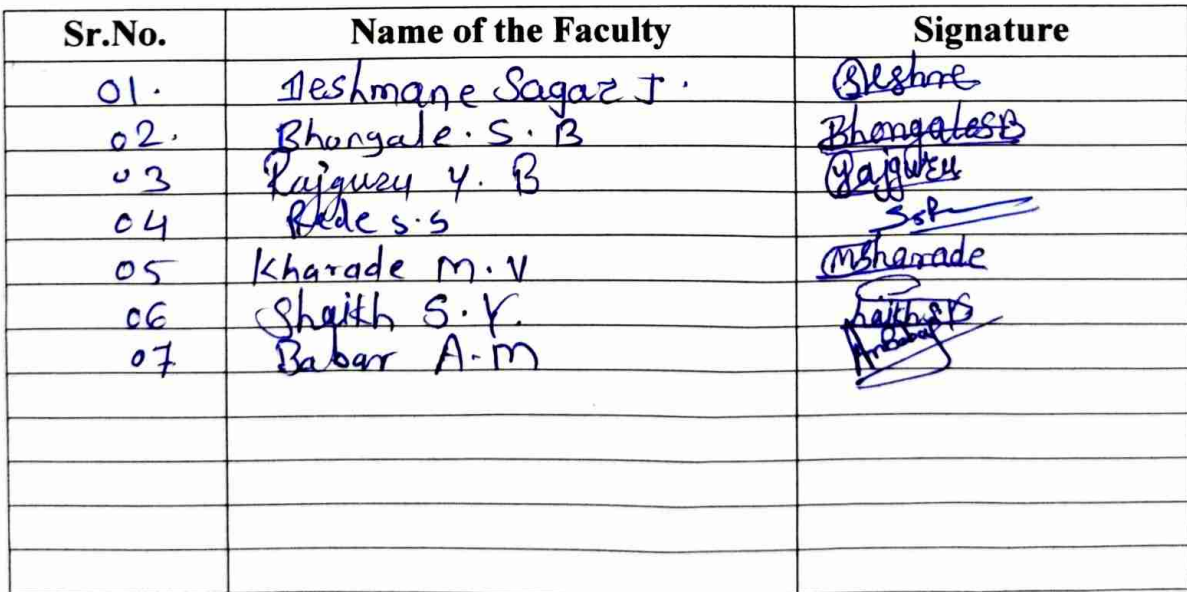 Sr.No. Name of the Faculty Signature
01. Deshmane Sagar J.
02. Bhongale. S. B BhongaleSB
03 Rajguru Y. B Rajguru
04 Bede s.s
05 Kharade M.V Mkharade
06 Shaikh S.Y.
07 Babar A.M AmBabar